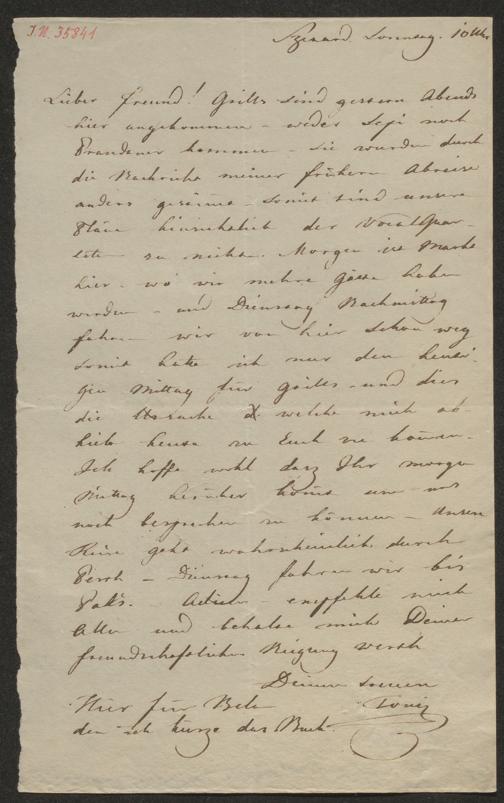 I.N. 35841
Szexard. Sonntag. 10 Uhr
Lieber Freund! Grills sind gestern Abends
hier angekommen – weder Sepi noch
kommen – sie wurden durch
die Nachricht meiner frühern Abreise
anders gesinnt – somit sind unsere
Pläne hinsichtlich der VocalQuar-
tete zu nichte. Morgen ist Markt
hier – wo wir mehre Gäste haben
werden – und Dienstag Nachmittag
fahren wir von hier schon weg
somit hatte ich nur den heuti-
gen Mittag für Grills – und dies
die Ursache welche mich ab-
hielt heute zu Euch zu kommen.
Ich hoffe wohl dasz Ihr morgen
Mittag herüber kömt um uns
noch besprechen zu können – Unsere
Reise geht wahrscheinlich durch
Pesth – Dienstag fahren wir bis
Paks. Adieu – empfehle mich
Allen und behalte mich Deiner
freundschaftlichen Neigung werth
Deinen treuen
Hier für Bela Toni
den ich kürze das Buch.